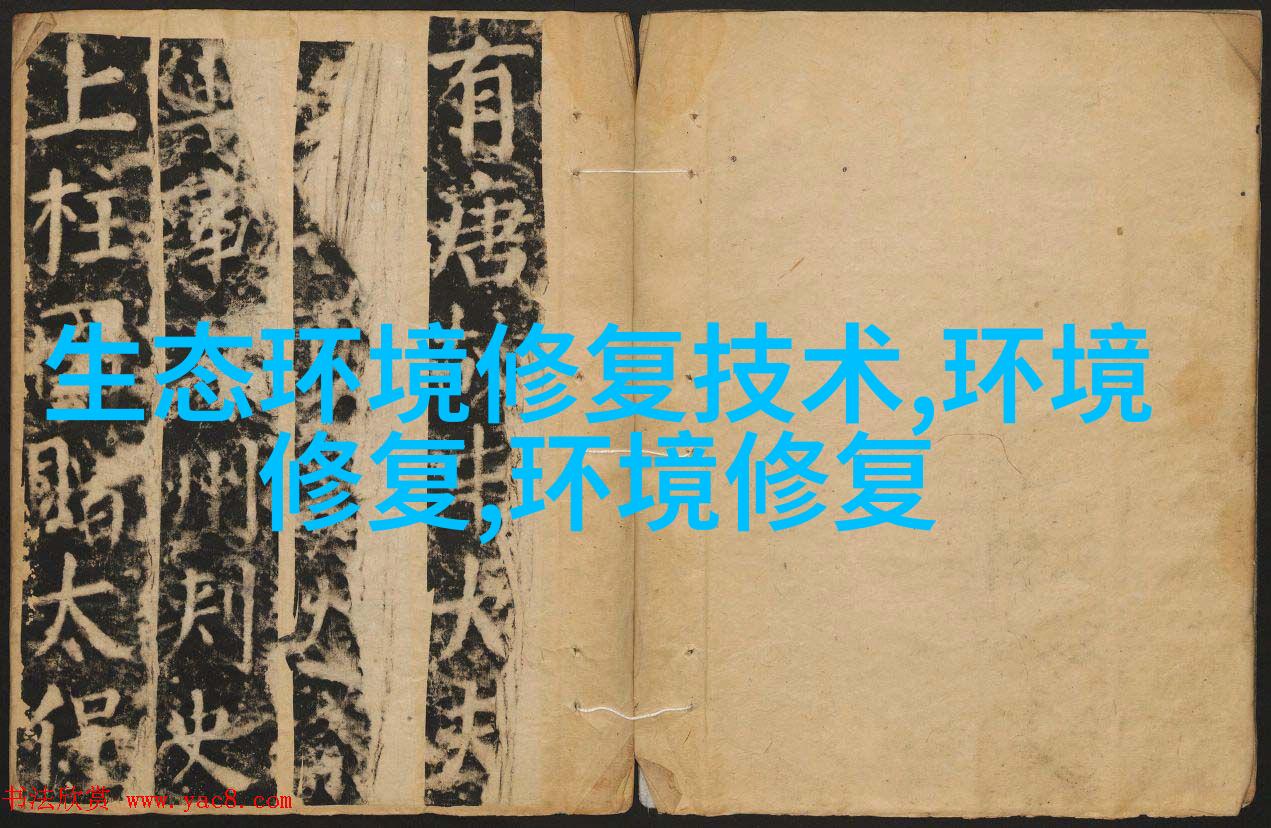 有唐
大夫
州刺史
上柱國
贈太保
生态环境修复技术,环境
修复,环境修复
书法欣赏 www.yac8.com